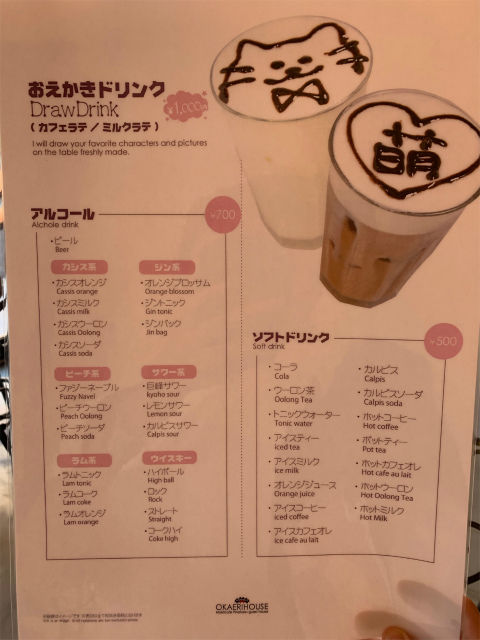 おえかきドリンク
DrawDrink
¥1,000
(カフェラテ / ミルクラテ)
I will draw your favorite characters and pictures
on the table freshly made.
萌
アルコール
¥700
Alchole drink
・ビール
Beer
カシス系
・カシスオレンジ
Cassis orange
・カシスミルク
Cassis milk
・カシスウーロン
Cassis Oolong
・カシスソーダ
Cassis soda
ジン系
・オレンジブロッサム
Orange blossom
・ジントニック
Gin tonic
・ジンバック
Jin bag
ピーチ系
・ファジーネーブル
Fuzzy Navel
・ピーチウーロン
Peach Oolong
・ピーチソーダ
Peach soda
サワー系
・巨峰サワー
kyoho sour
・レモンサワー
Lemon sour
・カルピスサワー
Calpis sour
ラム系
・ラムトニック
Lam tonic
・ラムコーク
Lam coke
・ラムオレンジ
Lam orange
ウイスキー
・ハイボール
High ball
・ロック
Rock
・ストレート
Straight
・コークハイ
Coke high
ソフトドリンク
¥500
Soft drink
・コーラ
Cola
・ウーロン茶
Oolong Tea
・トニックウォーター
Tonic water
・アイスティー
iced tea
・アイスミルク
ice milk
・オレンジジュース
Orange juice
・アイスコーヒー
iced coffee
・アイスカフェオレ
ice cafe au lait
・カルピス
Calpis
・カルピスソーダ
Calpis soda
・ホットコーヒー
Hot coffee
・ホットティー
Pot tea
・ホットカフェオレ
Hot cafe au lait
・ホットウーロン
Hot Oolong Tea
・ホットミルク
Hot Milk
OKAERIHOUSE